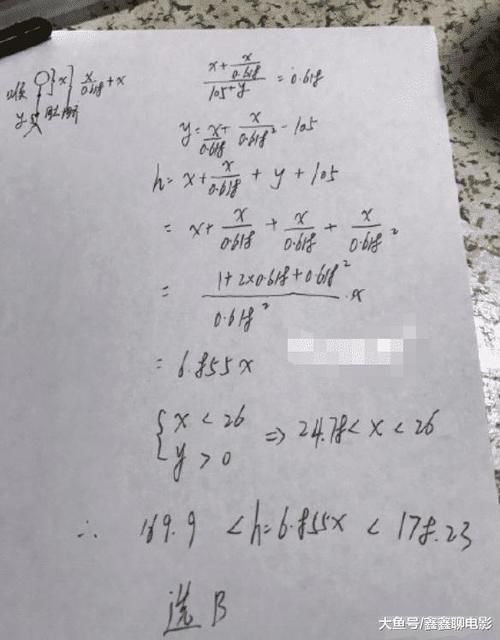 x } x/0.618 + x
(x + x/0.618)/(105+y) = 0.618
y = x/0.618 + x/0.618² - 105
h = x + x/0.618 + y + 105
= x + x/0.618 + x/0.618 + x/0.618²
= (1 + 2x0.618 + 0.618²)/0.618² · x
= 6.855x
{ x < 26
y > 0 ⇒ 24.78 < x < 26
∴ 169.9 < h = 6.855x < 178.23
选 B
大鱼号/鑫鑫聊电影